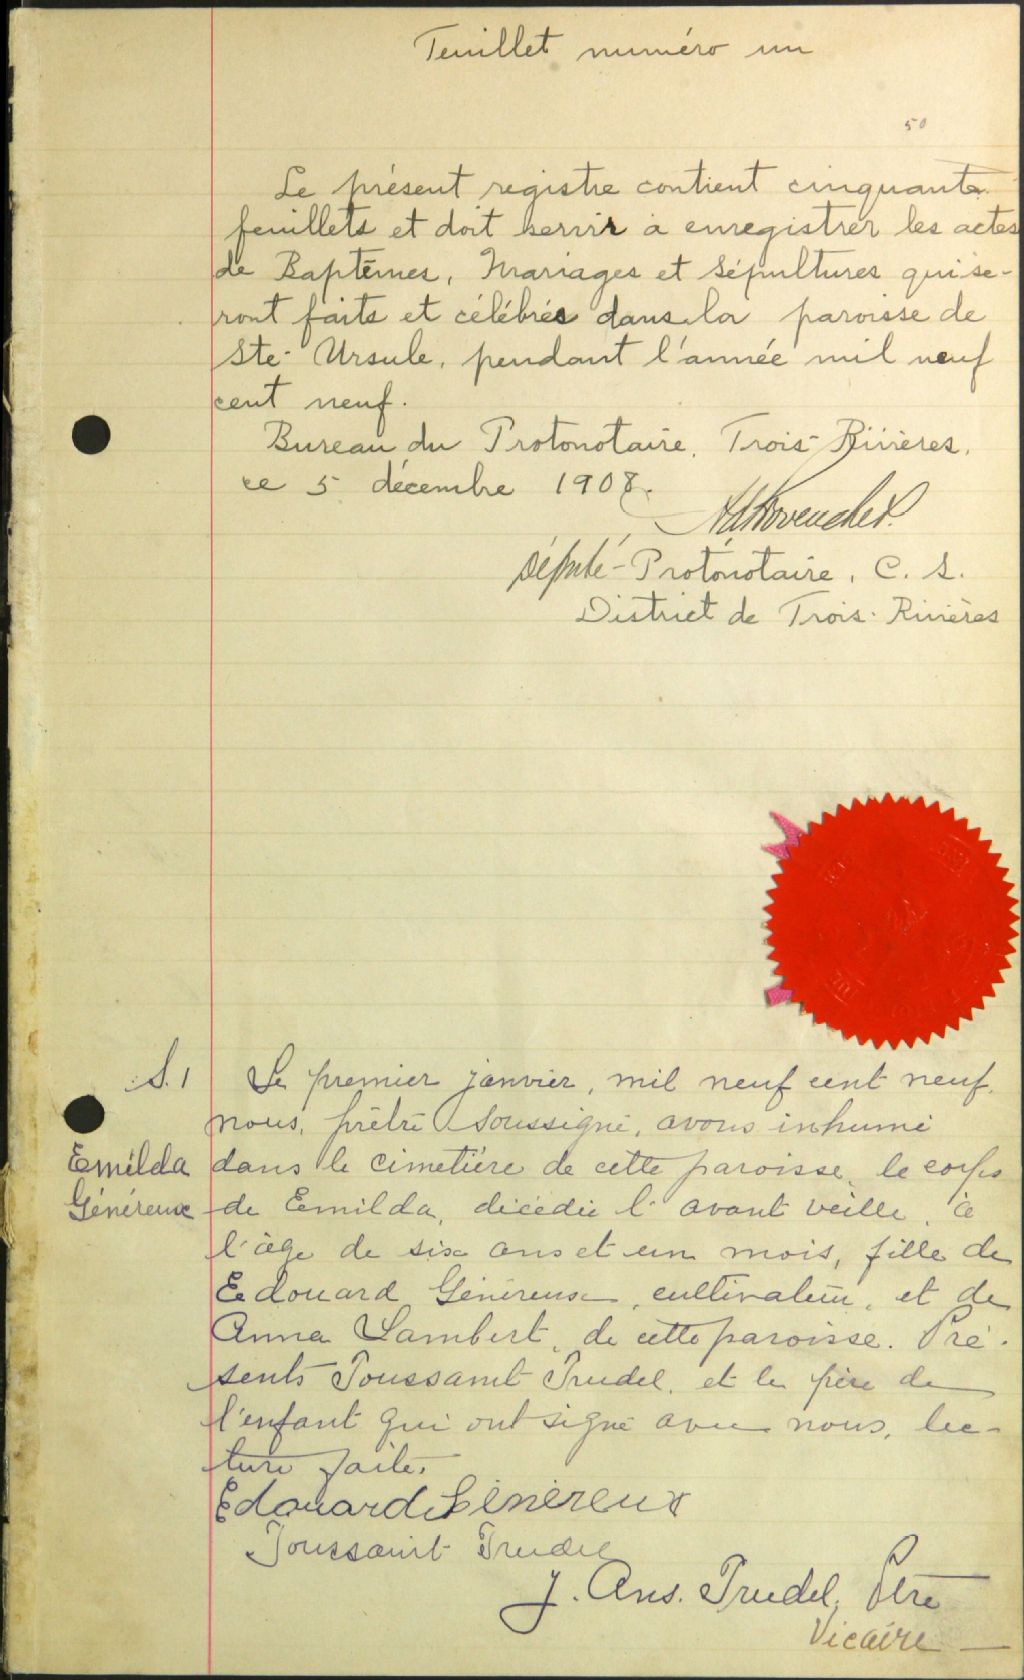 Feuillet numéro un
50
Le présent registre contient cinquante
feuillets et doit servir à enregistrer les actes
de Baptêmes, Mariages et Sépultures qui se-
ront faits et célébrés dans la paroisse de
Ste-Ursule, pendant l'année mil neuf
cent neuf.
Bureau du Protonotaire, Trois-Rivières,
ce 5 décembre 1908.
Député-Protonotaire, C. S.
District de Trois-Rivières
S. 1
Emilda
Généreux
Le premier janvier, mil neuf cent neuf,
nous, prêtre soussigné, avons inhumé
dans le cimetière de cette paroisse, le corps
de Emilda, décédée l'avant veille, à
l'âge de six ans et un mois, fille de
Edouard Généreux, cultivateur, et de
Anna Lambert, de cette paroisse. Pré-
sents Toussaint Trudel, et le père de
l'enfant qui ont signé avec nous, lec-
ture faite.
Edouard Généreux
Toussaint Trudel
J. Ans. Trudel, Ptre
Vicaire